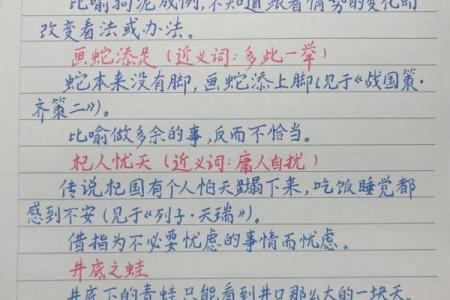 比喻拘泥成例,不知道跟着情势的变化而
改变看法或办法。
画蛇添足(近义词:多此一举)
蛇本来没有脚,画蛇添上脚(见于《战国策·
齐策二》)。
比喻做多余的事,反而不恰当。
杞人忧天(近义词:庸人自扰)
传说杞国有个人怕天蹋下来,吃饭睡觉都
感到不安(见于《列子·天瑞》)。
借指为不必要忧虑的事情而忧虑。
井底之蛙
井底下的青蛙只能看到井口那么大的一块天。